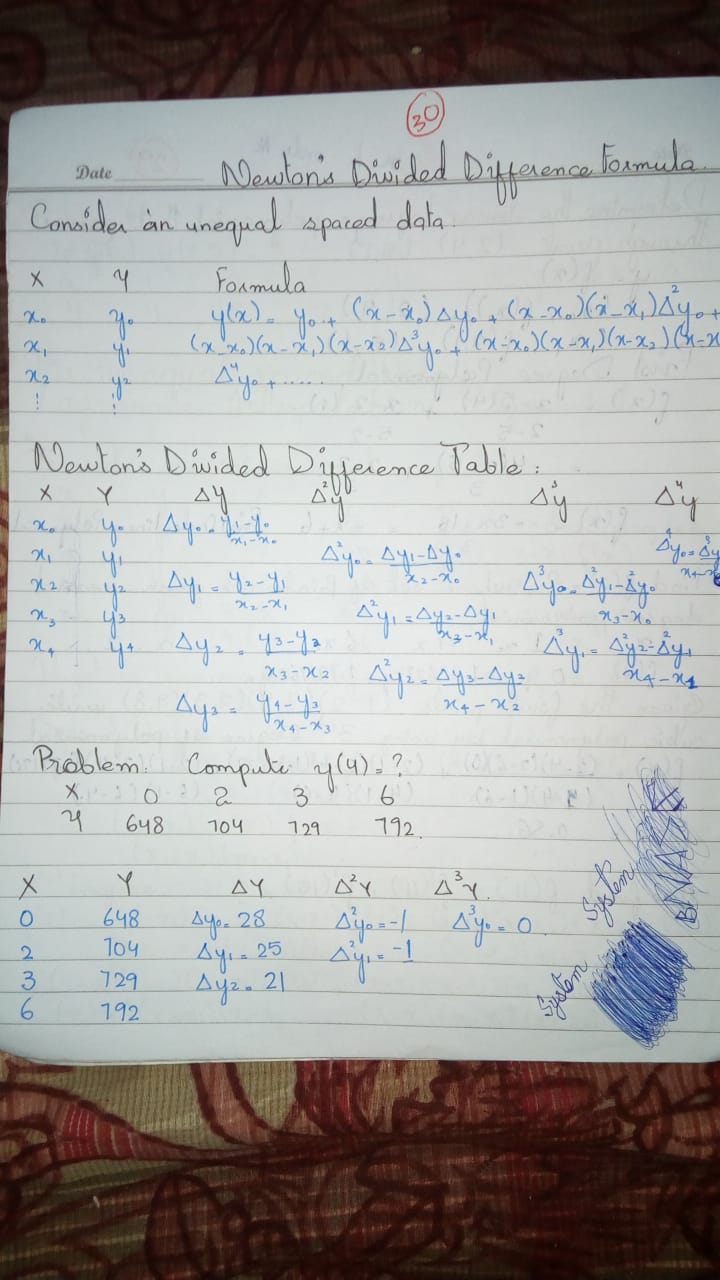 30
Date Newton's Divided Difference Formula
Consider an unequal spaced data.
X Y Formula
x₀ y₀ y(x) = y₀ + (x-x₀)Δy₀ + (x-x₀)(x-x₁)Δ²y₀ +
x₁ y₁ (x-x₀)(x-x₁)(x-x₂)Δ³y₀ + (x-x₀)(x-x₁)(x-x₂)(x-x
x₂ y₂ Δ⁴y₀ + ......
⋮ ⋮
Newton's Divided Difference Table:
X Y ΔY Δ²y Δ³y Δ⁴y
x₀ y₀ Δy₀ = y₁-y₀/x₁-x₀
x₁ y₁ Δ²y₀ = Δy₁-Δy₀/x₂-x₀ Δ⁴y₀ = Δ³y
x₂ y₂ Δy₁ = y₂-y₁/x₂-x₁ Δ³y₀ = Δ²y₁-Δ²y₀/x₃-x₀
x₃ y₃ Δ²y₁ = Δy₂-Δy₁/x₃-x₁
x₄ y₄ Δy₂ = y₃-y₂/x₃-x₂ Δ³y₁ = Δ²y₂-Δ²y₁/x₄-x₁
Δ²y₂ = Δy₃-Δy₂/x₄-x₂
Δy₃ = y₄-y₃/x₄-x₃
Problem: Compute y(4) = ?
X 0 2 3 6
Y 648 704 729 792.
X Y ΔY Δ²Y Δ³Y.
0 648 Δy₀ = 28 Δ²y₀ = -1 Δ³y₀ = 0
2 704 Δy₁ = 25 Δ²y₁ = -1
3 729 Δy₂ = 21
6 792
System
System